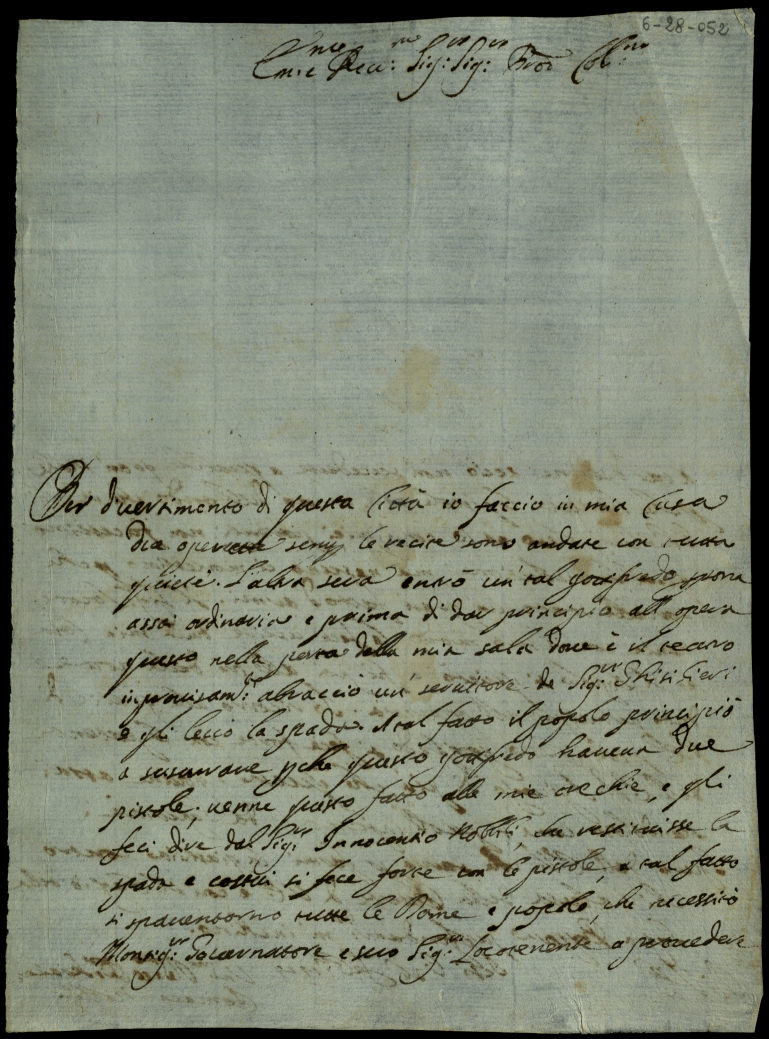 6-28-052
Em.e Rev.mo Sig.r Sig.r Pron Col.mo
Per divertimento di questa Città io faccio in mia Casa
dia operetta semp. le recite sono andate con tutta
quiete. L'altra sera entrò un tal Goffredo persona
assai ordinaria e prima di dar principio all'opera
questo nella porta della mia sala dove è il teatro
improvisam.te abracciò un servittore de Sig.ri Ghisilieri
e gli leciò la spada. A tal fatto il popolo principiò
a susurrare p che questo Goffredo haveva due
pistole, venne questo fatto alle mie orechie, e gli
feci dire dal Sig.r Innocentio Nobili, che restituisse la
spada e costui si fece forte con le pistole, a tal fatto
si spaventorno tutte le Dame e popolo, che necessitò
Monsig.r Governatore e suo Sig.r Locotenente a provedere